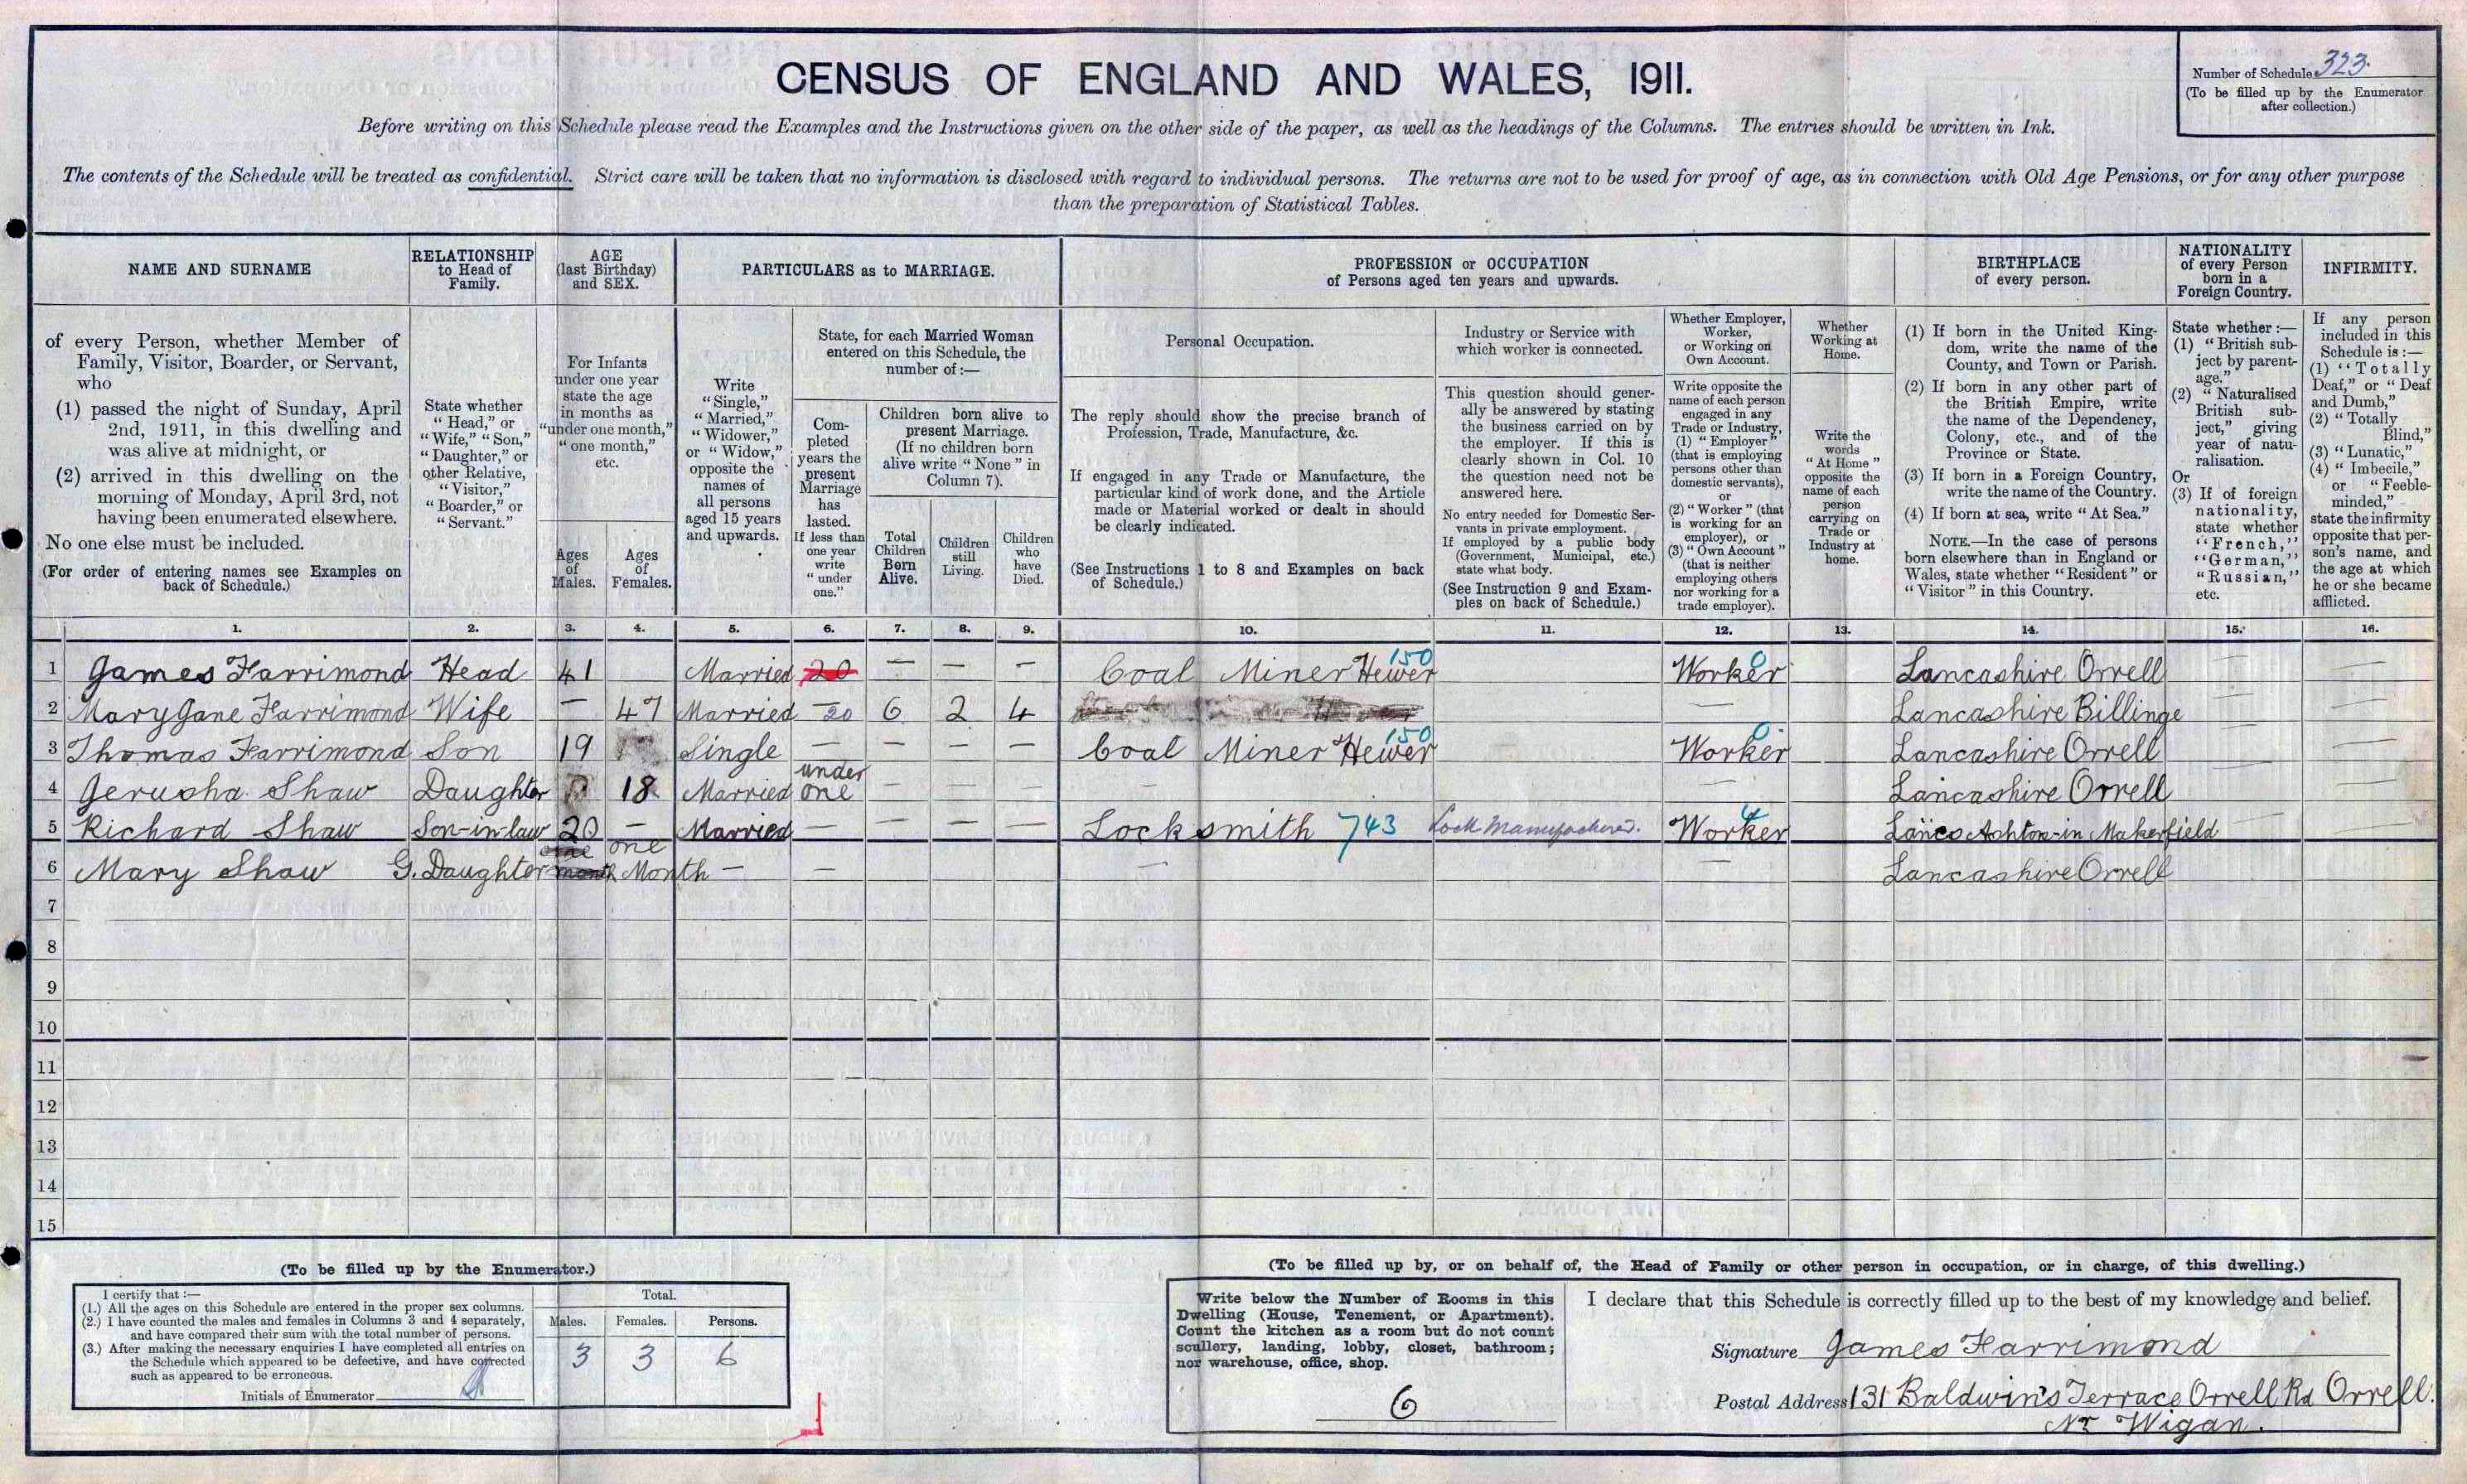 CENSUS OF ENGLAND AND WALES, 1911.
Number of Schedule 323.
(To be filled up by the Enumerator
after collection.)
Before writing on this Schedule please read the Examples and the Instructions given on the other side of the paper, as well as the headings of the Columns. The entries should be written in Ink.
The contents of the Schedule will be treated as confidential. Strict care will be taken that no information is disclosed with regard to individual persons. The returns are not to be used for proof of age, as in connection with Old Age Pensions, or for any other purpose
than the preparation of Statistical Tables.
NAME AND SURNAME
of every Person, whether Member of
Family, Visitor, Boarder, or Servant,
who
(1) passed the night of Sunday, April
2nd, 1911, in this dwelling and
was alive at midnight, or
(2) arrived in this dwelling on the
morning of Monday, April 3rd, not
having been enumerated elsewhere.
No one else must be included.
(For order of entering names see Examples on
back of Schedule.)
RELATIONSHIP
to Head of
Family.
State whether
"Head," or
"Wife," "Son,"
"Daughter," or
other Relative,
"Visitor,"
"Boarder," or
"Servant."
AGE
(last Birthday)
and SEX.
For Infants
under one year
state the age
in months as
"under one month,"
"one month,"
etc.
Ages
of
Males.
Ages
of
Females.
PARTICULARS as to MARRIAGE.
Write
"Single,"
"Married,"
"Widower,"
or "Widow,"
opposite the
names of
all persons
aged 15 years
and upwards.
State, for each Married Woman
entered on this Schedule, the
number of:—
Com-
pleted
years the
present
Marriage
has
lasted.
If less than
one year
write
"under
one."
Children born alive to
present Marriage.
(If no children born
alive write "None" in
Column 7).
Total
Children
Born
Alive.
Children
still
Living.
Children
who
have
Died.
PROFESSION or OCCUPATION
of Persons aged ten years and upwards.
Personal Occupation.
The reply should show the precise branch of
Profession, Trade, Manufacture, &c.
If engaged in any Trade or Manufacture, the
particular kind of work done, and the Article
made or Material worked or dealt in should
be clearly indicated.
(See Instructions 1 to 8 and Examples on back
of Schedule.)
Industry or Service with
which worker is connected.
This question should gener-
ally be answered by stating
the business carried on by
the employer. If this is
clearly shown in Col. 10
the question need not be
answered here.
No entry needed for Domestic Ser-
vants in private employment.
If employed by a public body
(Government, Municipal, etc.)
state what body.
(See Instruction 9 and Exam-
ples on back of Schedule.)
Whether Employer,
Worker,
or Working on
Own Account.
Write opposite the
name of each person
engaged in any
Trade or Industry,
(1) "Employer"
(that is employing
persons other than
domestic servants),
or
(2) "Worker" (that
is working for an
employer), or
(3) "Own Account"
(that is neither
employing others
nor working for a
trade employer).
Whether
Working at
Home.
Write the
words
"At Home"
opposite the
name of each
person
carrying on
Trade or
Industry at
home.
BIRTHPLACE
of every person.
(1) If born in the United King-
dom, write the name of the
County, and Town or Parish.
(2) If born in any other part of
the British Empire, write
the name of the Dependency,
Colony, etc., and of the
Province or State.
(3) If born in a Foreign Country,
write the name of the Country.
(4) If born at sea, write "At Sea."
NOTE.—In the case of persons
born elsewhere than in England or
Wales, state whether "Resident" or
"Visitor" in this Country.
NATIONALITY
of every Person
born in a
Foreign Country.
State whether:—
(1) "British sub-
ject by parent-
age."
(2) "Naturalised
British sub-
ject," giving
year of natu-
ralisation.
Or
(3) If of foreign
nationality,
state whether
"French,"
"German,"
"Russian,"
etc.
INFIRMITY.
If any person
included in this
Schedule is:—
(1) "Totally
Deaf," or "Deaf
and Dumb,"
(2) "Totally
Blind,"
(3) "Lunatic,"
(4) "Imbecile,"
or "Feeble-
minded,"
state the infirmity
opposite that per-
son's name, and
the age at which
he or she became
afflicted.
1. 2. 3. 4. 5. 6. 7. 8. 9. 10. 11. 12. 13. 14. 15. 16.
1 James Farrimond Head 41 Married 20 — — — Coal Miner Hewer 150 Worker 0 Lancashire Orrell — —
2 Mary Jane Farrimond Wife — 47 Married 20 6 2 4 — Lancashire Billinge — —
3 Thomas Farrimond Son 19 Single — — — — Coal Miner Hewer 150 Worker 0 Lancashire Orrell — —
4 Jerusha Shaw Daughter 18 Married under one — — — — — Lancashire Orrell — —
5 Richard Shaw Son-in-law 20 — Married — — — — Locksmith 743 Lock Manufacturer. Worker 4 Lancs Ashton-in Makerfield
6 Mary Shaw G. Daughter one month one Month — — — — Lancashire Orrell
7
8
9
10
11
12
13
14
15
(To be filled up by the Enumerator.)
I certify that:—
(1.) All the ages on this Schedule are entered in the proper sex columns.
(2.) I have counted the males and females in Columns 3 and 4 separately,
and have compared their sum with the total number of persons.
(3.) After making the necessary enquiries I have completed all entries on
the Schedule which appeared to be defective, and have corrected
such as appeared to be erroneous.
Initials of Enumerator
Total.
Males. Females. Persons.
3 3 6
(To be filled up by, or on behalf of, the Head of Family or other person in occupation, or in charge, of this dwelling.)
Write below the Number of Rooms in this
Dwelling (House, Tenement, or Apartment).
Count the kitchen as a room but do not count
scullery, landing, lobby, closet, bathroom;
nor warehouse, office, shop.
6
I declare that this Schedule is correctly filled up to the best of my knowledge and belief.
Signature James Farrimond
Postal Address 131 Baldwin's Terrace Orrell Rd Orrell.
Nr Wigan.